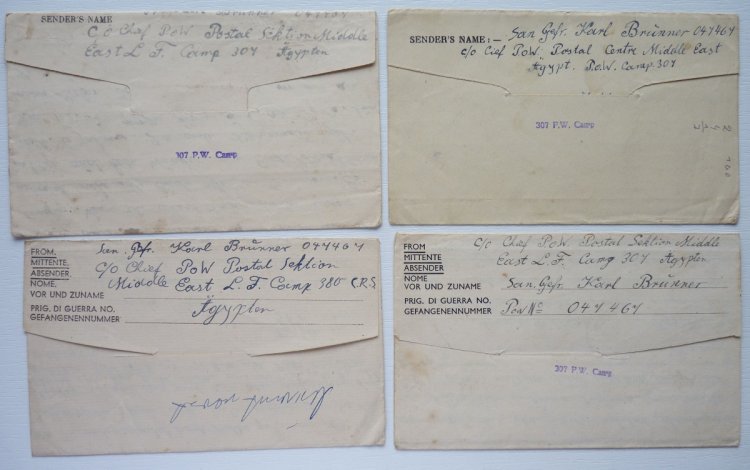 Brunner 047467
SENDER'S NAME
c/o Chef PoW Postal Sektion Middle
East L F. Camp 307 Ägypten
307 P.W. Camp
SENDER'S NAME :- San Gefr. Karl Brünner 047467
c/o Cief PoW. Postal Centre Middle East
Ägypt. P.o.W. Camp. 307
307 P.W. Camp
FROM,
MITTENTE,
ABSENDER
NOME,
VOR UND ZUNAME
PRIG. DI GUERRA NO.
GEFANGENENNUMMER
San. Gfr. Karl Brŭnner 047467
c/o Chief PoW Postal Sektion
Middle East L F. Camp 380 C.R.S.
Ägypten
FROM
MITTENTE
ABSENDER
NOME.
VOR UND ZUNAME
PRIG. DI GUERRA NO.
GEFANGENENNUMMER
c/o Chef PoW. Postal Sektion Middle
East L F. Camp 307 Ägypten
San. Gefr. Karl Brŭnner
PoW No 047467
307 P.W. Camp